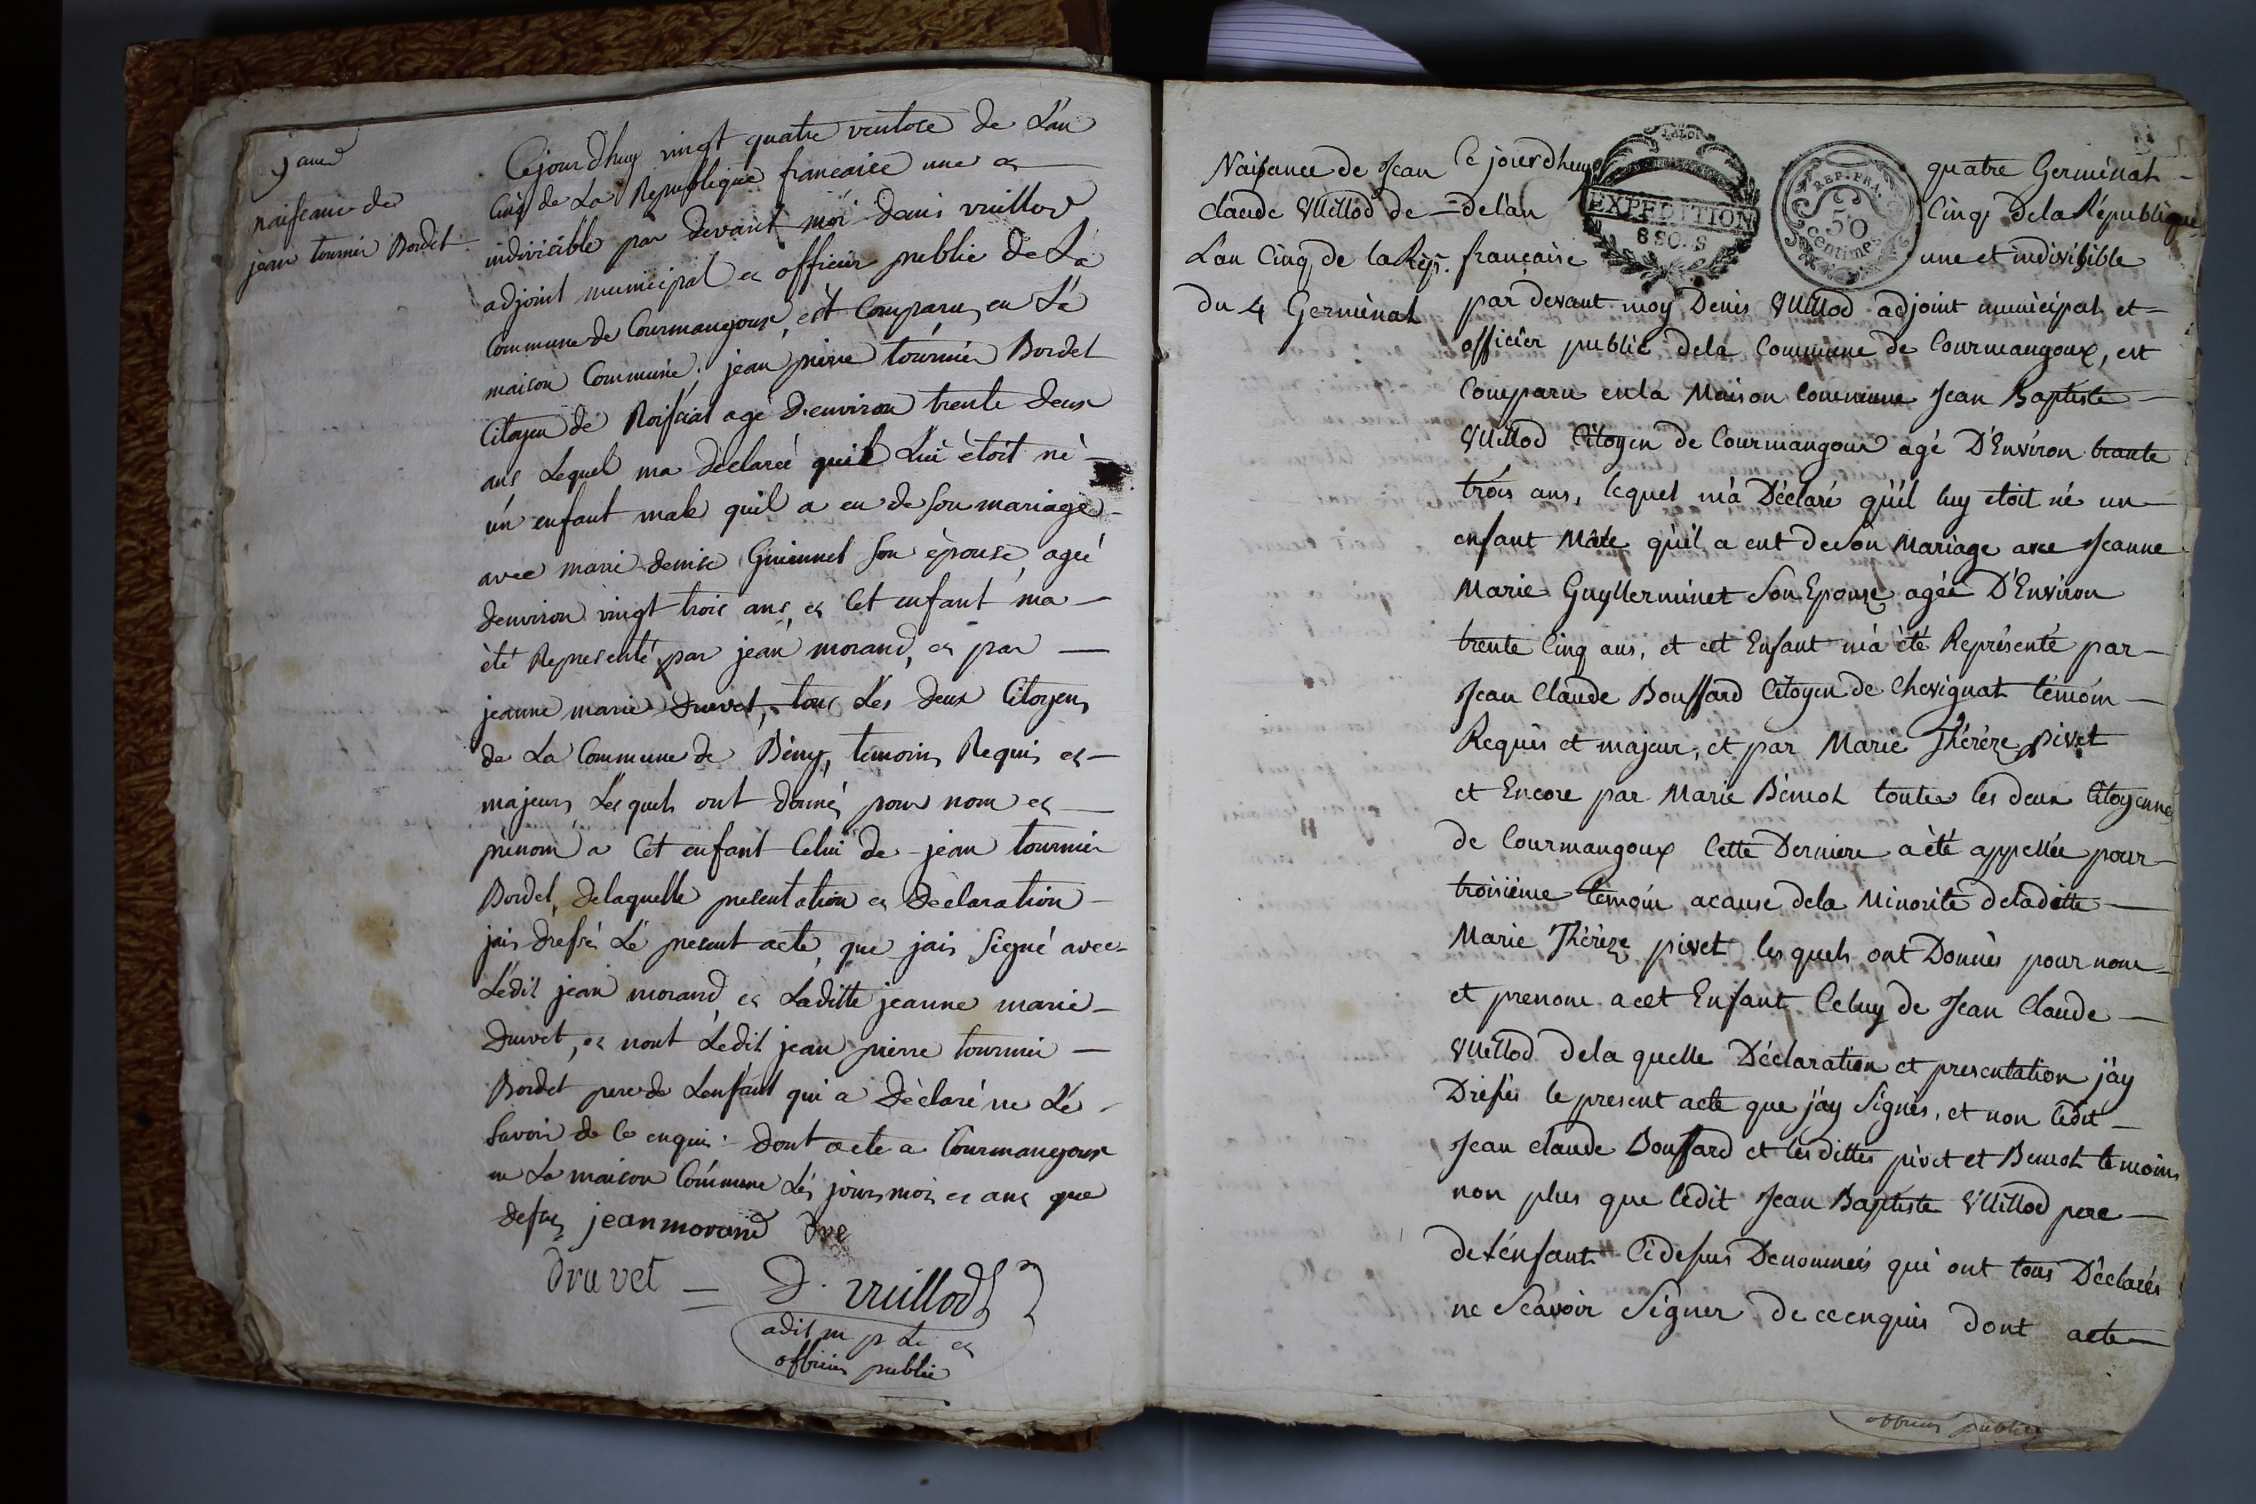 naissance de
jean tournier Bordet
Cejourdhuy vingt quatre ventose de L'an
Cinq de La Republique francaise une et
indivisible par devant moi denis vuillod
adjoint municipal et officier public de La
Commune de Courmangoux, est Comparu en La
maison Commune, jean pierre tournier Bordet
Citoyen de Roissiat agé d'environ trente deux
ans Lequel ma declaré quil Lui étoit né
un enfant male quil a eu de son mariage
avec marie denise son épouse, agée
denviron vingt trois ans, et Cet enfant ma
été Representé par jean morand, et par
jeanne marie druvet, tous Les deux Citoyens
de La Commune de Bény, temoins Requis et
majeurs Lesquels ont donnés pour nom et
prénom a Cet enfant Celui de jean tournier
Bordet, delaquelle presentation et déclaration
jais dressé Le present acte, que jais signé avec
Ledit jean morand et Laditte jeanne marie
druvet, et nont Ledit jean pierre tournier
Bordet pere de Lenfant qui a déclaré ne Le
savoir de Ce enquis. dont acte a Courmangoux
en La maison Commune Les jours mois et ans que
dessus jeanmorand dre
druvet = d. vuillod
adit m p L et
officier public
Naissance de Jean
claude Vuillod de
L'an Cinq de la Rép.
du 4 Germinal
Ce jourdhuy quatre Germinal
EXPÉDITION
8 SO.S
REP. FRA.
50
centimes
= de l'an Cinq de la République
française une et indivisible
par devant moy Denis Vuillod adjoint municipal et =
officier public dela Commune de Courmangoux, est
Comparu enla Maison Commune Jean Baptiste
Vuillod Citoyen de Courmangoux agé D'Environ trante
trois ans, lequel m'a Déclaré qu'il luy etoit né un
enfant Mâle qu'il a eut deson Mariage avec Jeanne
Marie Guyllerminet son Epouse, agée D'Environ
trente Cinq ans, et cet Enfant m'a été Représenté par
Jean Claude Bouffard Citoyen de Chevignat témoin
Requis et majeur, et par Marie Thérèze pivet
et Encore par Marie Benoit toutes les deux Citoyennes
de Courmangoux Cette Derniere a été appellée pour
troisième temoin acause dela Minorité deladitte
Marie Thérèze pivet lesquels ont Donnés pour nom
et prenom acet Enfant Celuy de Jean Claude
Vuillod dela quelle Déclaration et presentation j'ay
Dressés le present acte que j'ay signés, et non ledit
Jean claude Bouffard et lesdittes pivet et Benoit temoins
non plus que ledit Jean Baptiste Vuillod pere
del'énfant Cidessus Denommés qui ont tous Déclarés
ne Scavoir Signer de ceenquis dont acte
officier public